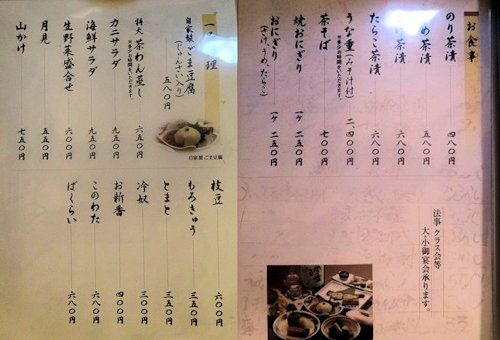 お食事
のり茶漬 四八〇円
め茶漬 五八〇円
茶漬 六八〇円
たらこ茶漬 六八〇円
うな重(みそ汁付) 二、四〇〇円
※多少お時間をいただきます。
茶そば 七〇〇円
焼おにぎり 一ケ 二五〇円
おにぎり 一ケ 二五〇円
(さけ、うめ、たらこ)
法事 クラス会等
大・小御宴会承ります。
一 理
自家製ごま豆腐 五八〇円
(じゅんさい入り)
自家製ごま豆腐
特大 茶わん蒸し 六五〇円
※多少お時間をいただきます。
カニサラダ 九五〇円
海鮮サラダ 九五〇円
生野菜盛合せ 六〇〇円
月見 五五〇円
山かけ 七五〇円
枝豆 六〇〇円
もろきゅう 三五〇円
とまと 三五〇円
冷奴 三〇〇円
お新香 四〇〇円
このわた 六八〇円
ばくらい 六八〇円